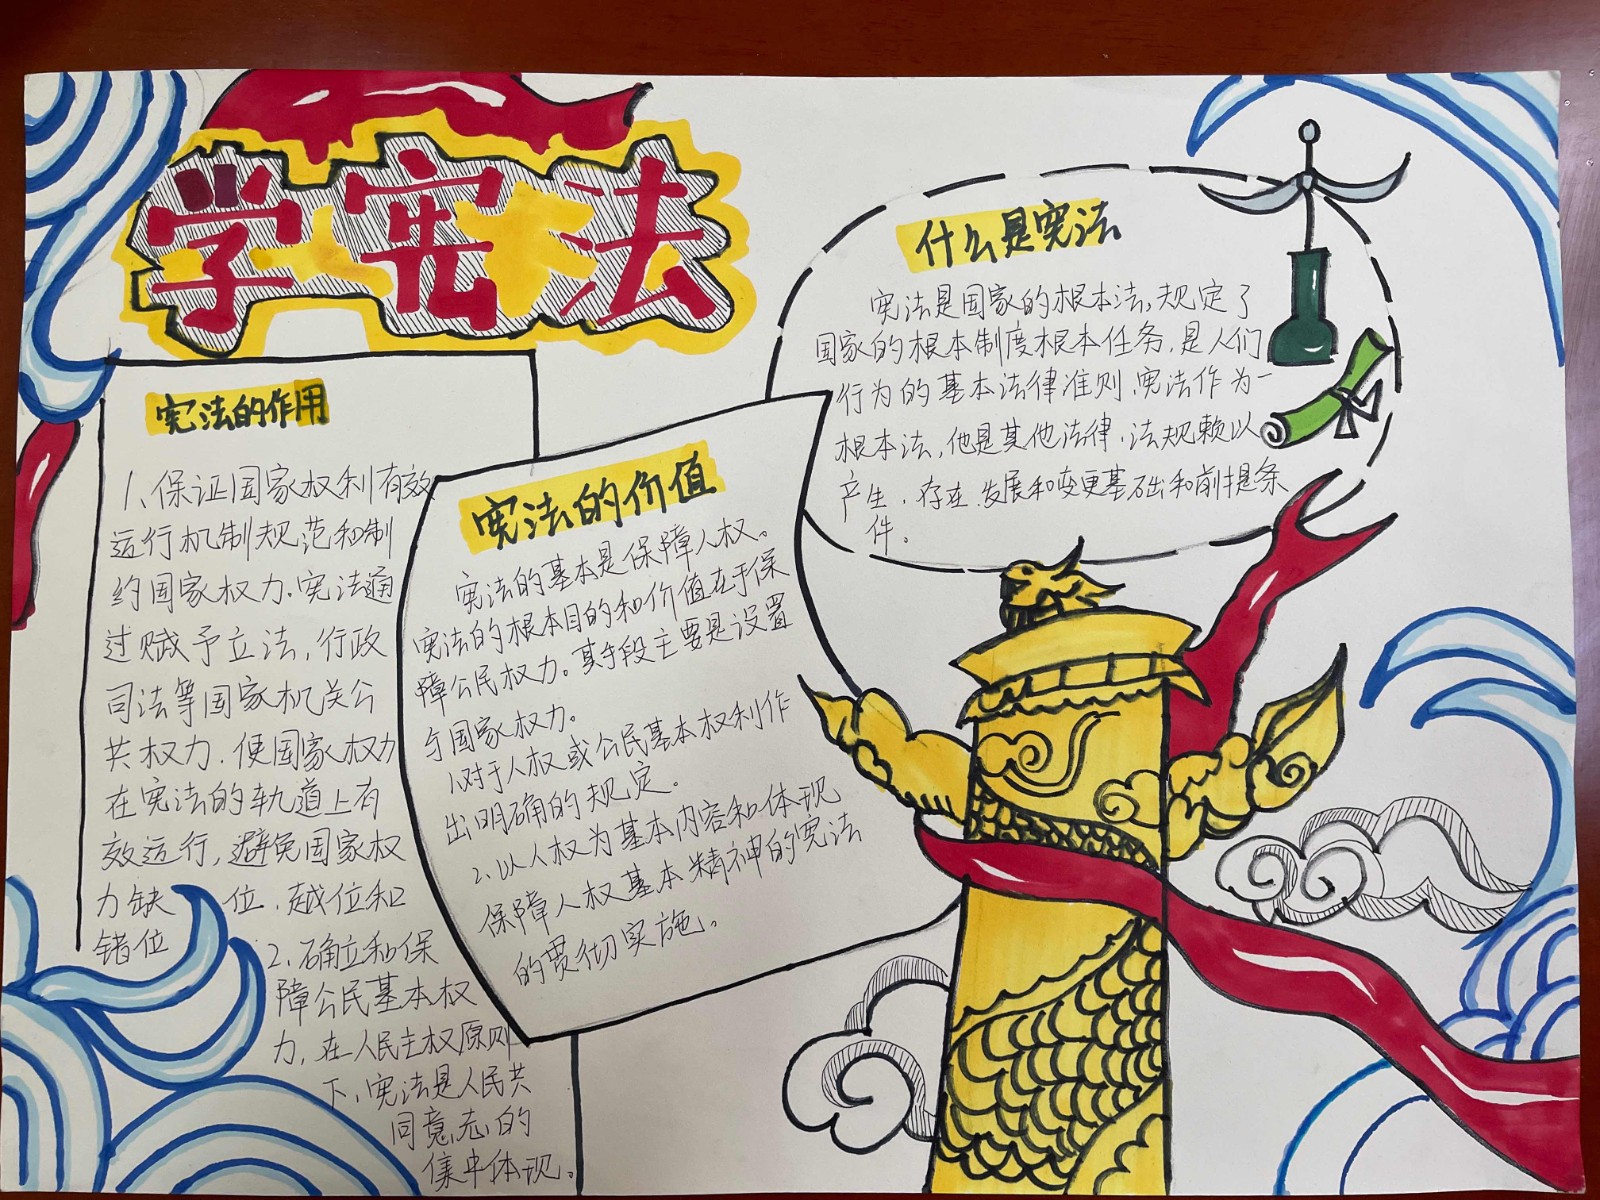 学宪法
宪法的作用
1、保证国家权利有效
运行机制规范和制
约国家权力.宪法通
过赋予立法,行政
司法等国家机关公
共权力.使国家权力
在宪法的轨道上有
效运行,避免国家权
力缺位.越位和
错位
2.确立和保
障公民基本权
力,在人民主权原则
下,宪法是人民共
同意志的
集中体现。
宪法的价值
宪法的基本是保障人权。
宪法的根本目的和价值在于保
障公民权力。其手段主要是设置
与国家权力。
1.对于人权或公民基本权利作
出明确的规定。
2.以人权为基本内容和体现
保障人权基本精神的宪法
的贯彻实施。
什么是宪法
宪法是国家的根本法,规定了
国家的根本制度根本任务,是人们
行为的基本法律准则,宪法作为一
根本法,他是其他法律,法规赖以
产生,存在,发展和变更基础和前提条
件。